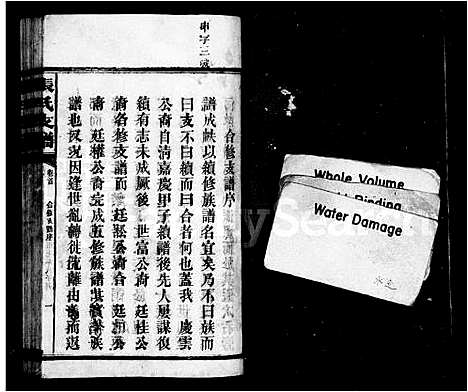 合修支譜序
譜成帙以續修族譜名宜矣乃不曰族而
曰支不曰續而曰合者何也蓋我 慶雲
公裔自清嘉慶甲子續譜後先人屢謀復
續有志未成厥後 世富公裔 廷桂公
裔各修支譜而 廷獻公裔合 廷相公
裔 廷權公裔完成五修族譜其實舉族
譜也況又因逢世亂轉徙流離由湘而返
張氏支譜
卷首
合修支譜序
一
Whole Volume
Binding
Water Damage
水之
FamilySearch